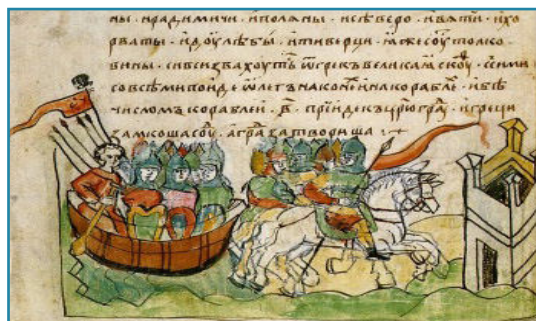 ны · ирадимичи · иполѧны · исѣверо · ивѧти · ихо
рваты · идоулѣбы · итиверци · ꙗжесоутолко
вины · сивсизвахоуть ѿгрекъ великаꙗ скоуѳ · ссими
совсѣми поиде ѡлегъ наконе инакораблѣ · ибѣ
числомъ кораблей · в҃ · прїиде къ црюгра · игреци
замкоша соу · агра затвориша